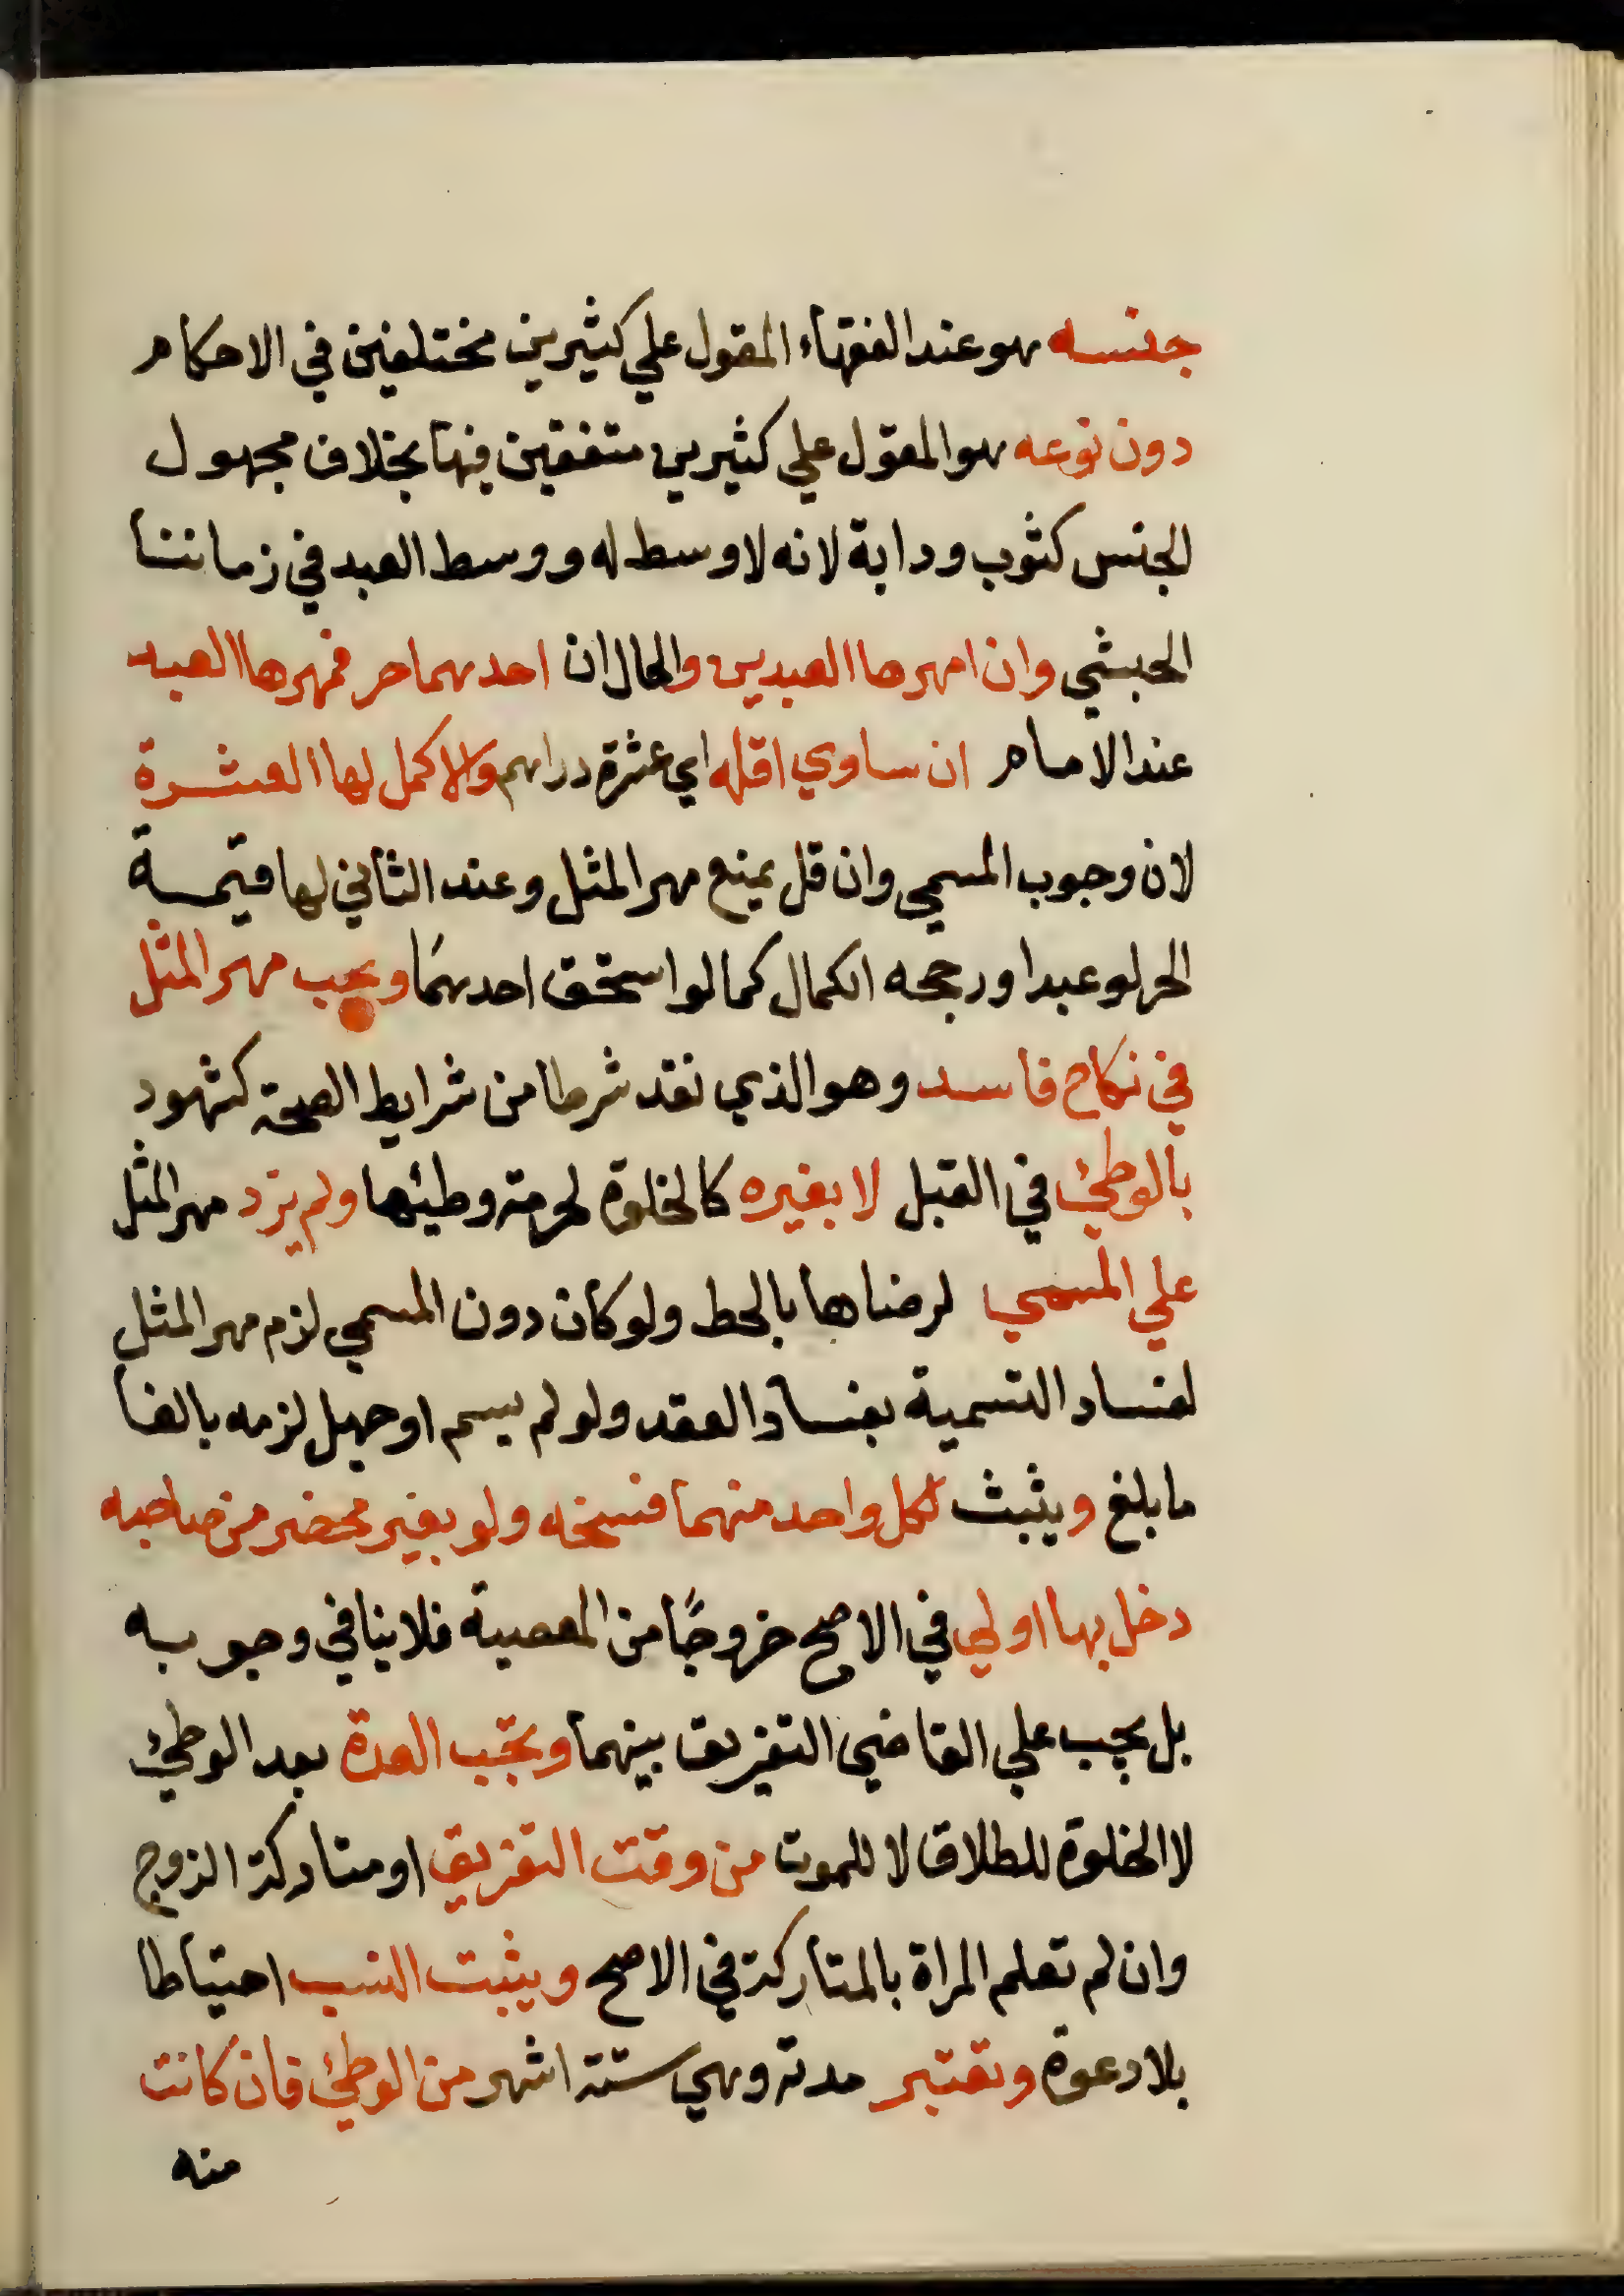 جنسه هو عند الفقهاء المقول علي كثيرين مختلفين في الاحكام
دون نوعه هو المقول علي كثيرين متفقين فيها بخلاف مجهول
الجنس كثوب ودابة لانه لا وسط له ووسط العبد في زماننا
الحبشي وان امهرها العبدين والحال ان احدهما حر فمهرها العبد
عند الامام ان ساوي اقله اي عشرة دراهم والا كمل لها العشرة
لان وجوب المسمي وان قل يمنع مهر المثل وعند الثاني لها قيمة
الحر لو عبدا ورجحه الكمال كما لو استحق احدهما ويجب مهر المثل
في نكاح فاسد وهو الذي فقد شرطا من شرايط الصحة كشهود
بالوطئ في القبل لا بغيره كالخلوة لحرمة وطئها ولم يزد مهر المثل
علي المسمي لرضاها بالحط ولو كان دون المسمي لزم مهر المثل
لفساد التسمية بفساد العقد ولو لم يسم او جهل لزمه بالغا
ما بلغ ويثبت لكل واحد منهما فسخه ولو بغير محضر من صاحبه
دخل بها اولي في الاصح خروجًا من المعصية فلا ينافي وجوبه
بل يجب علي القاضي التفريق بينهما وتجب العدة بعد الوطئ
لا الخلوة للطلاق لا للموت من وقت التفريق او متاركة الزوج
وان لم تعلم المراة بالمتاركة في الاصح ويثبت النسب احتياطا
بلا دعوة وتعتبر مدته وهي ستة اشهر من الوطئ فان كانت
منه